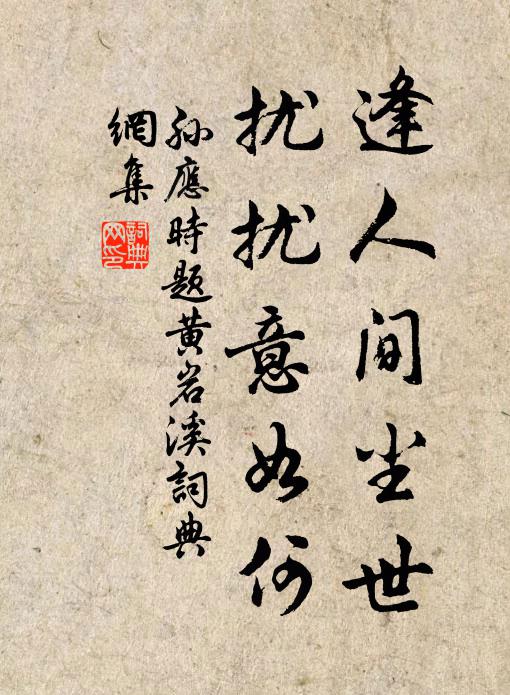 逢人间尘世
扰扰意如何
孙應時题黄岩溪詞典
網集
詞典
网印